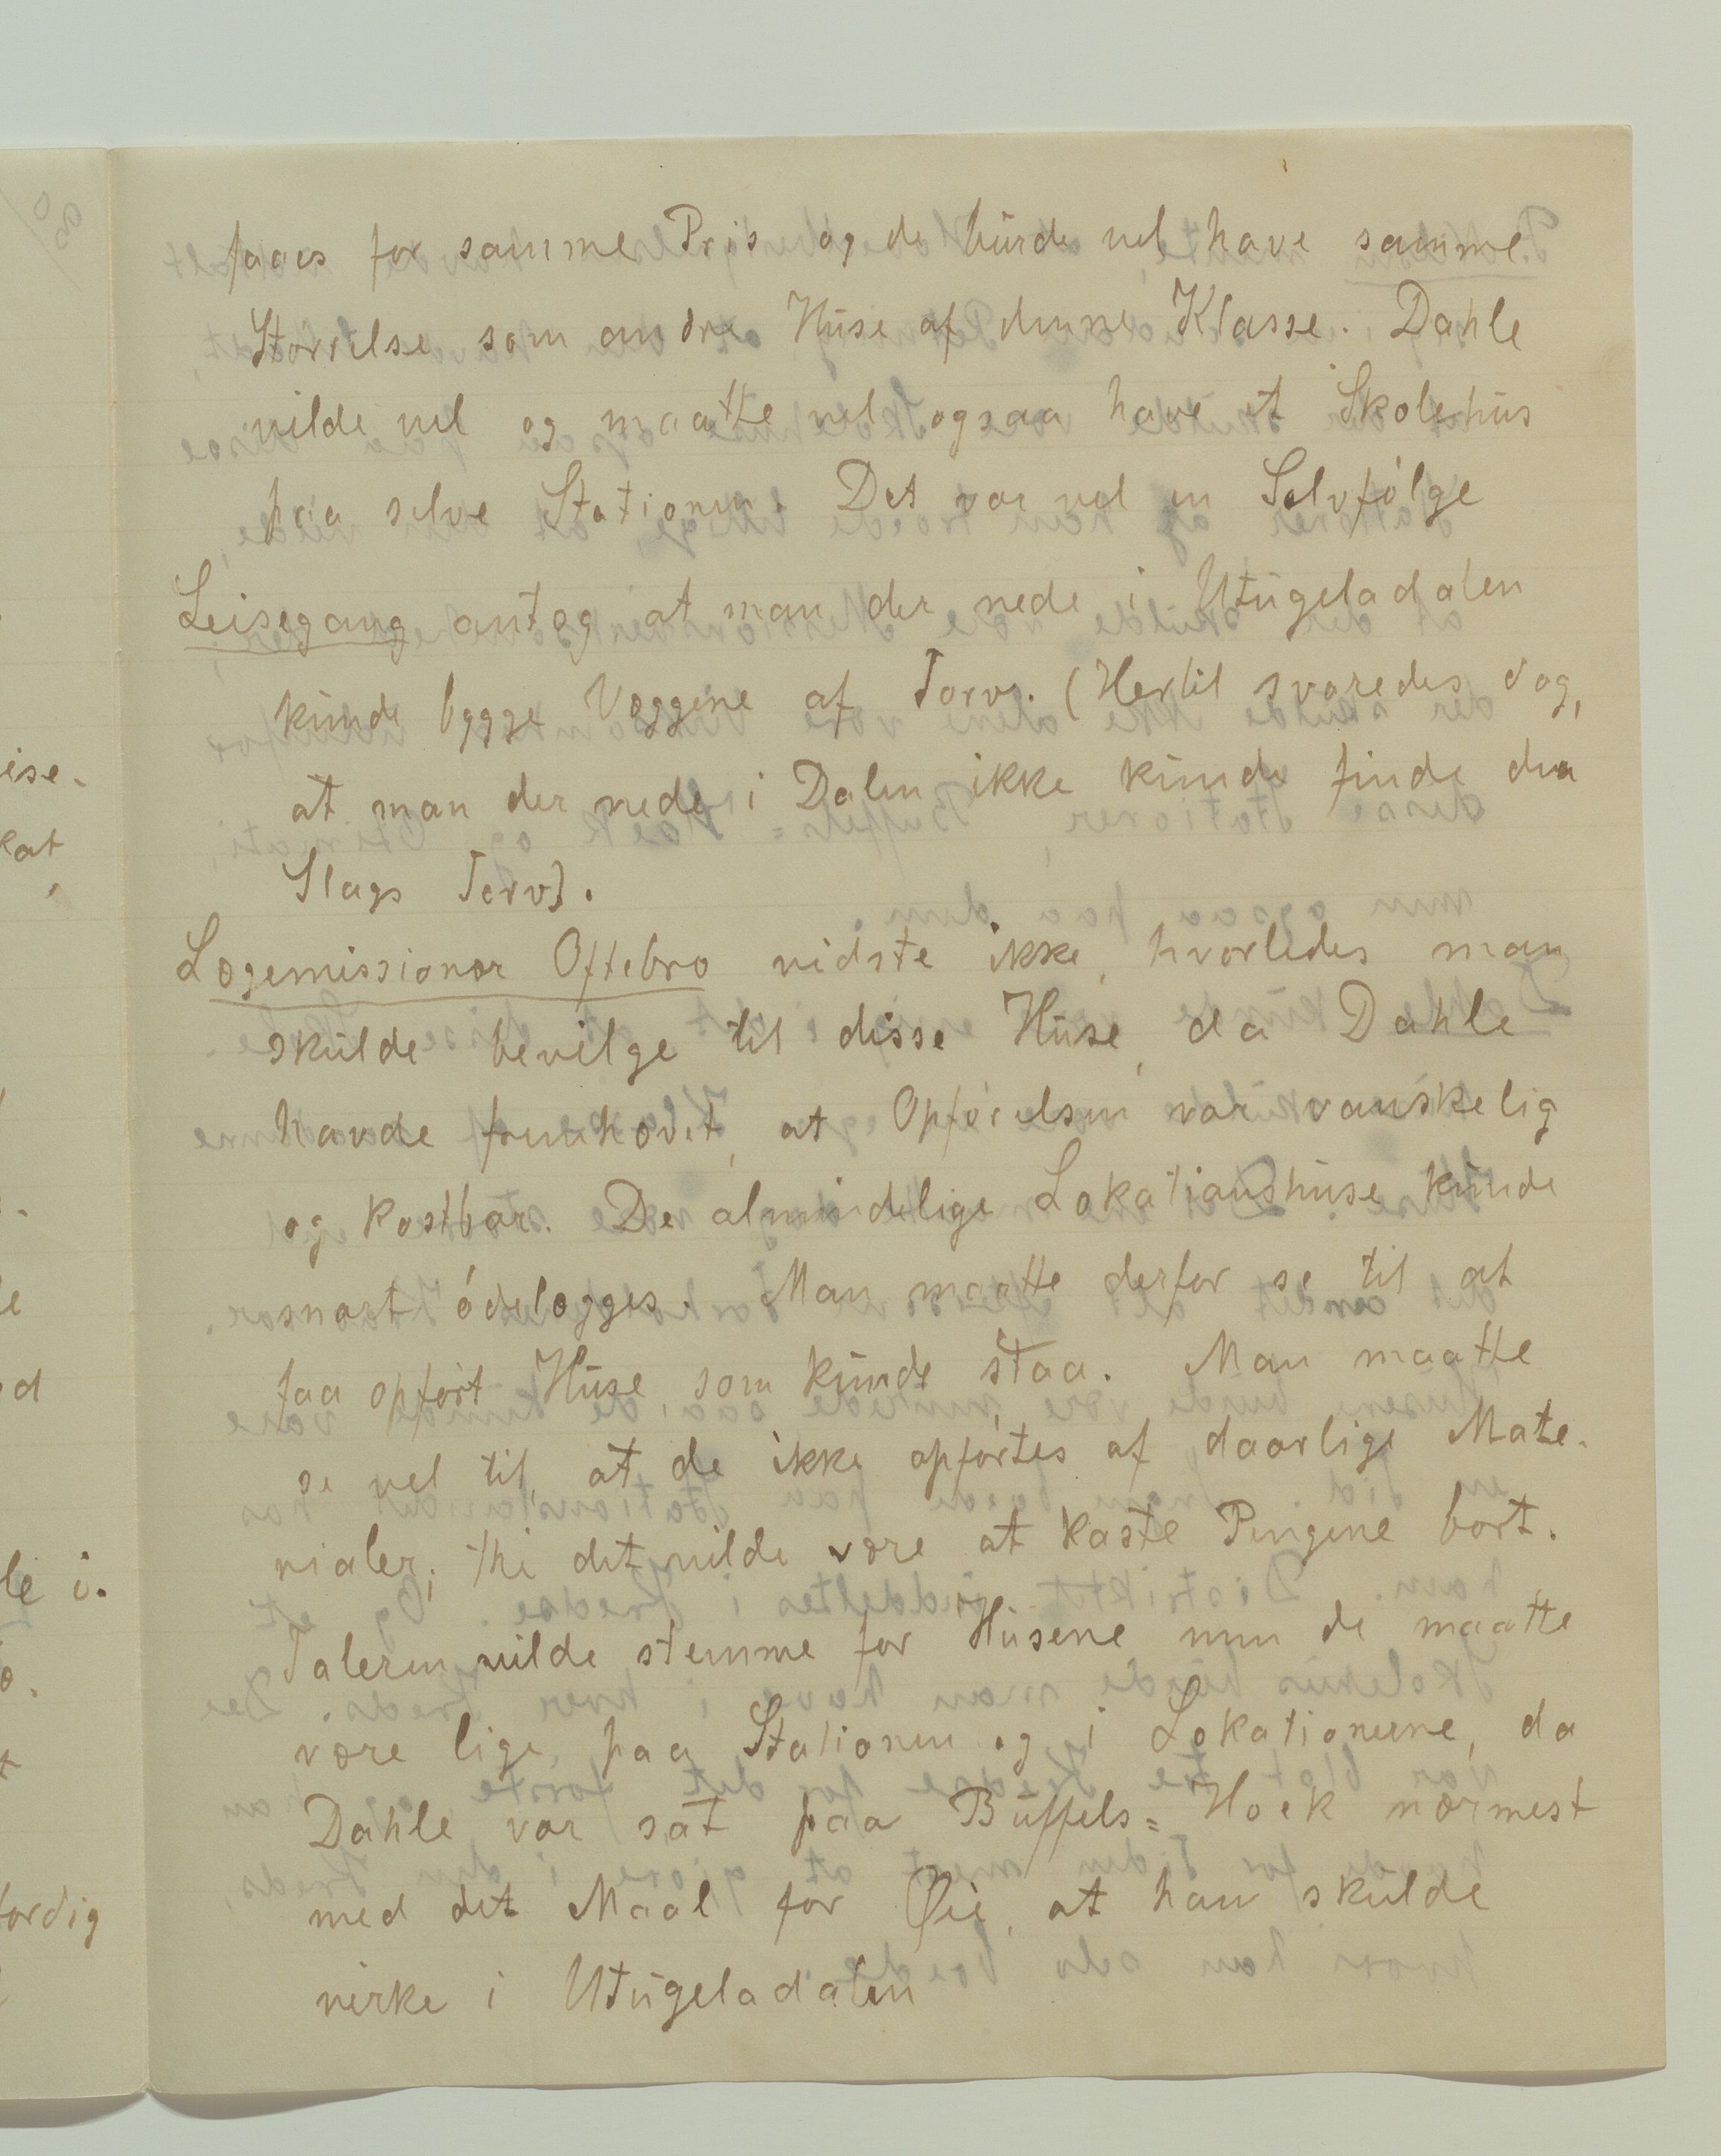 faaes for samme Pris og de burde vel have samme
Størrelse som andre Huse af denne Klasse. Dahle
vilde vel og maatte vel ogsaa have et Skolehus
paa selve Stationen. Det var vel en Selvfølge
Leisegang antog at man der nede i Utugeladalen
kunde bygge Væggene af Torv. (Hertil svaredes dog,
at man der nede i Dalen ikke kunde finde den
Slags Torv).
Lægemissionær Oftebro vidste ikke, hvorledes man
skulde bevilge til disse Huse, da Dahle
havde fremhævet, at Opførelsen var vanskelig
og kostbar. De almindelige Lokationshuse kunde
snart ødelægges. Man maatte derfor se til at
faa opført Huse, som kunde staa. Man maatte
se vel til, at de ikke opførtes af daarlige Mate-
rialer; thi det vilde være at kaste Pengene bort.
Taleren vilde stemme for Husene, men de maatte
være lige paa Stationen og i Lokationerne, da
Dahle var sat paa Buffels-Hoek nærmest
med det Maal for Øie, at han skulde
virke i Utugeladalen
ise-
kat
e
d
le i.
o.
færdig